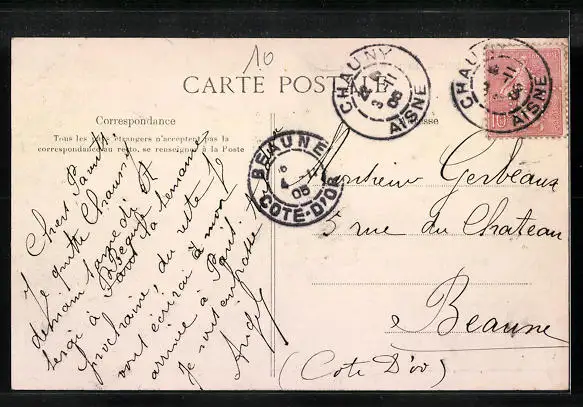 10
CARTE POSTALE
Correspondance
Tous les pays étrangers n'acceptent pas la
correspondance au recto, se renseigner à la Poste
Chers Parents
Je quitte Chauny
demain samedi et
serai à
toute la semaine
prochaine, du reste je
vous écrirai à mon
arrivée à Paris.
Je vous embrasse
CHAUNY
AISNE
3 -11
05
CHAUNY
AISNE
BEAUNE
COTE-D'OR
05
10
Monsieur Gerbeaux
5 rue du Chateau
Beaune
(Cote D'or)